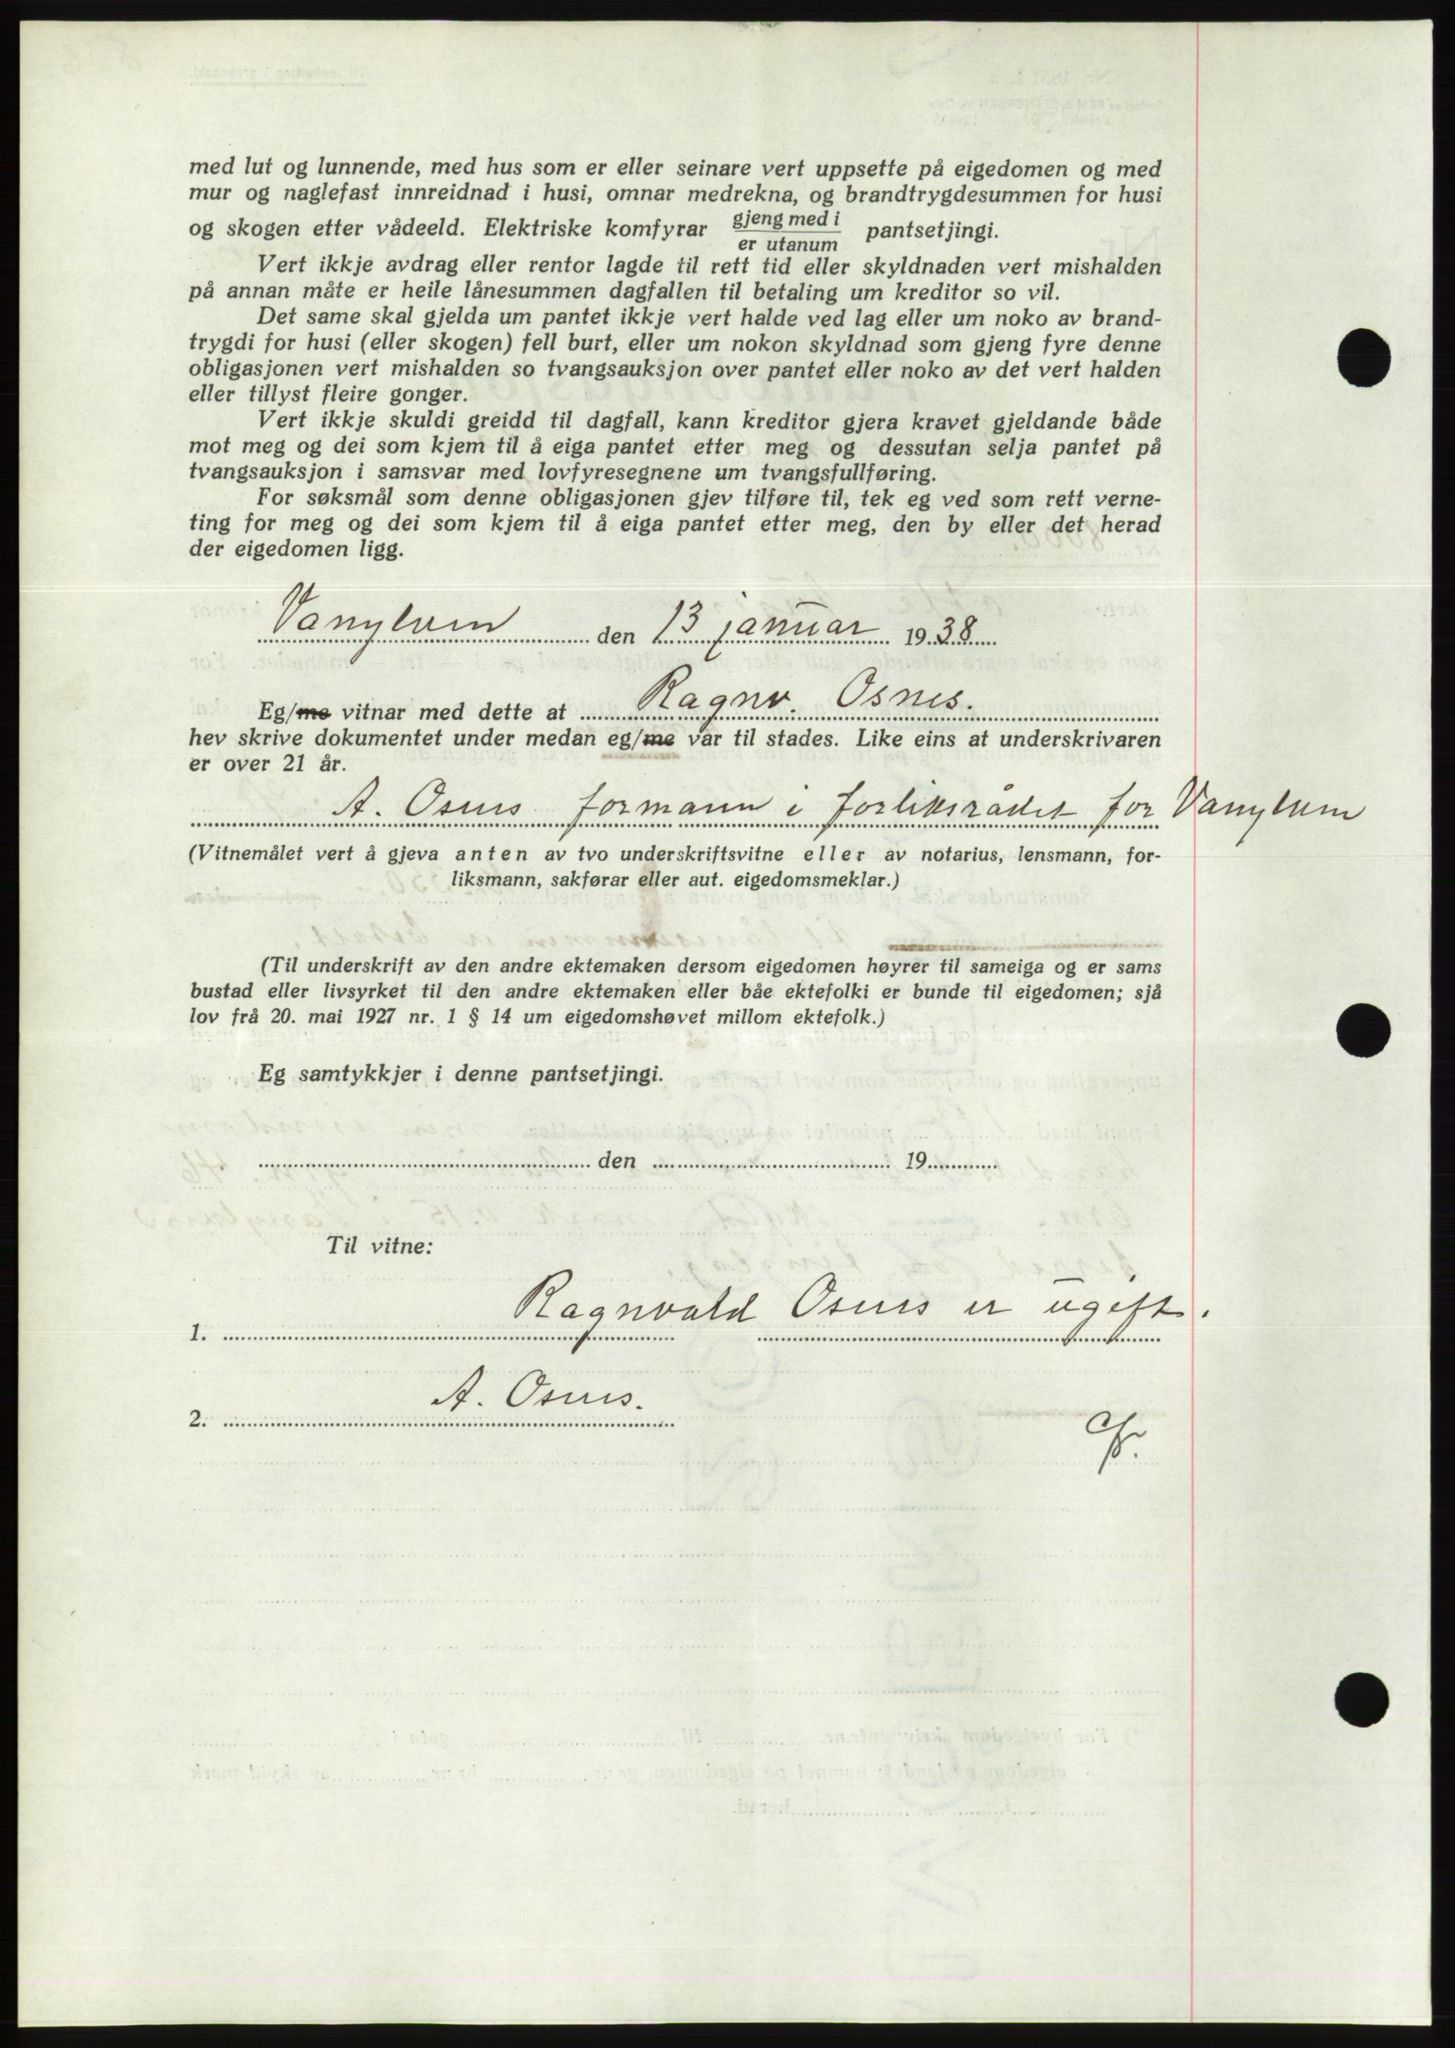 med lut og lunnende, med hus som er eller seinare vert uppsette på eigedomen og med
mur og naglefast innreidnad i husi, omnar medrekna, og brandtrygdesummen for husi
og skogen etter vådeeld. Elektriske komfyrar gjeng med i / er utanum pantsetjingi.
Vert ikkje avdrag eller rentor lagde til rett tid eller skyldnaden vert mishalden
på annan måte er heile lånesummen dagfallen til betaling um kreditor so vil.
Det same skal gjelda um pantet ikkje vert halde ved lag eller um noko av brand-
trygdi for husi (eller skogen) fell burt, eller um nokon skyldnad som gjeng fyre denne
obligasjonen vert mishalden so tvangsauksjon over pantet eller noko av det vert halden
eller tillyst fleire gonger.
Vert ikkje skuldi greidd til dagfall, kann kreditor gjera kravet gjeldande både
mot meg og dei som kjem til å eiga pantet etter meg og dessutan selja pantet på
tvangsauksjon i samsvar med lovfyresegnene um tvangsfullføring.
For søksmål som denne obligasjonen gjev tilføre til, tek eg ved som rett verne-
ting for meg og dei som kjem til å eiga pantet etter meg, den by eller det herad
der eigedomen ligg.
Vanylven den 13 januar 1938
Eg/me vitnar med dette at Ragnv. Osnes.
hev skrive dokumentet under medan eg/me var til stades. Like eins at underskrivaren
er over 21 år.
A. Osnes formann i forliksrådet for Vanylven
(Vitnemålet vert å gjeva anten av tvo underskriftsvitne eller av notarius, lensmann, for-
liksmann, sakførar eller aut. eigedomsmeklar.)
(Til underskrift av den andre ektemaken dersom eigedomen høyrer til sameiga og er sams
bustad eller livsyrket til den andre ektemaken eller båe ektefolki er bunde til eigedomen; sjå
lov frå 20. mai 1927 nr. 1 § 14 um eigedomshøvet millom ektefolk.)
Eg samtykkjer i denne pantsetjingi.
den 19
Til vitne:
1. Ragnvald Osnes er ugift.
2. A. Osnes.